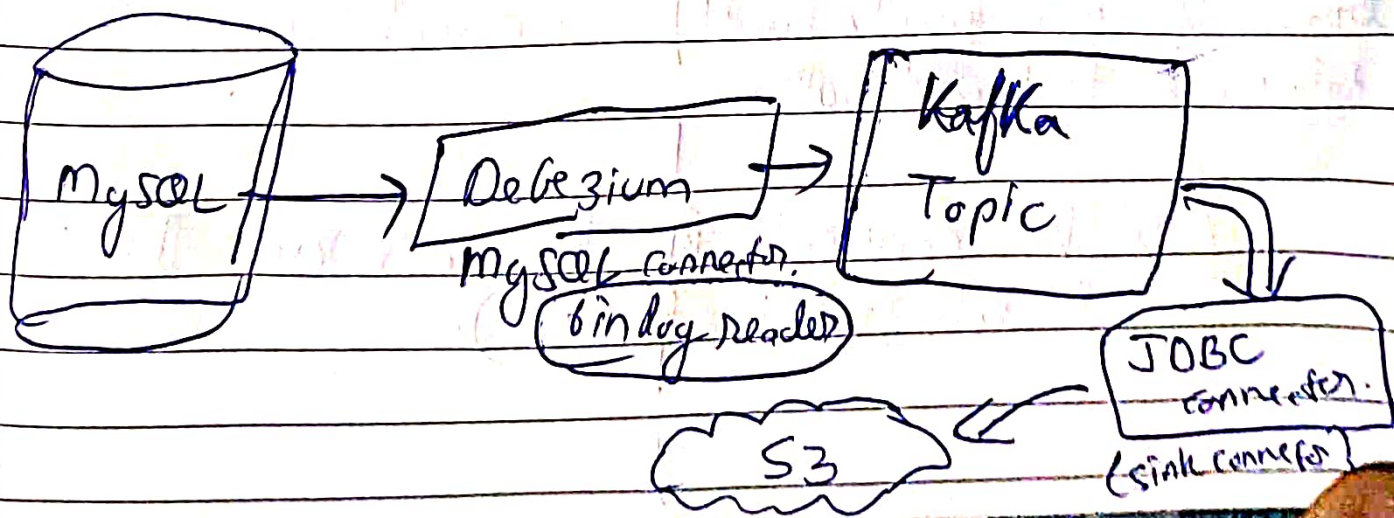 MySQL
Debezium
MySQL connector.
binlog reader
Kafka
Topic
JDBC
connector.
(sink connector)
S3